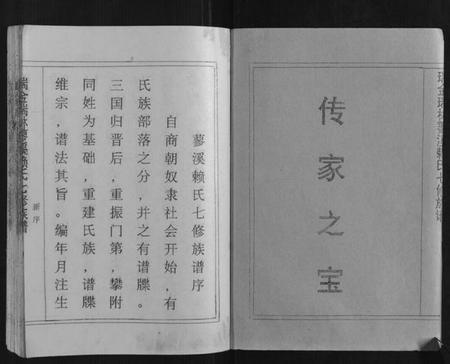 传家之宝
蓼溪赖氏七修族谱序
自商朝奴隶社会开始，有
氏族部落之分，并之有谱牒。
三国归晋后，重振门第，攀附
同姓为基础，重建民族，谱牒
维宗，谱法其旨。编年月注生
新序